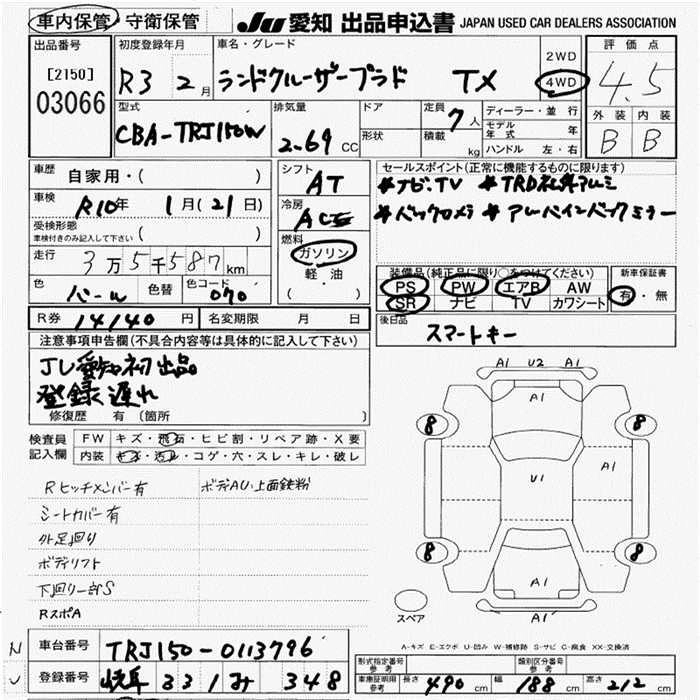 車内保管・守衛保管 JU 愛知 出品申込書 JAPAN USED CAR DEALERS ASSOCIATION
出品番号 初度登録年月 車名・グレード 2WD 評価点
[2150] R3 2月 ランドクルーザープラド TX 4WD 4.5
03066
型式 排気量 ドア 定員 7人 ディーラー・並行 外装 内装
CBA-TRJ150W 2.69 CC 形状 積載 kg モデル年式 年 B B
ハンドル 左・右
車歴 自家用・( ) シフト AT セールスポイント(正常に機能するものに限ります)
車検 R10年 1月(21日) 冷房 AC *ナビ.TV *TRD社外アルミ
受検形態 ( ) *バックカメラ *アルパインバックミラー
車検付きのみ記入して下さい
燃料 ガソリン
走行 3万5千587km 軽油 装備品(純正品に限り○をつけてください) 新車保証書
色 パール 色替 色コード 070 ( ) PS PW エアB AW 有・無
SR ナビ TV カワシート
R券 14140円 名変期限 月 日 後日品 スマートキー
注意事項申告欄(不具合内容等は具体的に記入して下さい)
JU愛知初出品
登録遅れ
修復歴 有 (箇所 )
A1 U2 A1
A1
8 8
U1 A1
8 8
A1
スペア A1
検査員記入欄 FW キズ・飛石・ヒビ割・リペア跡・X要
内装 キズ・汚レ・コゲ・穴・スレ・キレ・破レ
Rヒッチメンバー有 ボディAU・上面鉄粉
シートカバー有
外足廻り
ボディリフト
下廻り一部S
RスポA
A-キズ E-エクボ U-凹み W-補修跡 S-サビ C-腐食 XX-交換済
車台番号 TRJ150-0113796 形式指定番号 参考 類別区分番号 参考
登録番号 岐阜 331 み 348 車庫証明用参考 長さ 490cm 幅 188cm 高さ 212cm